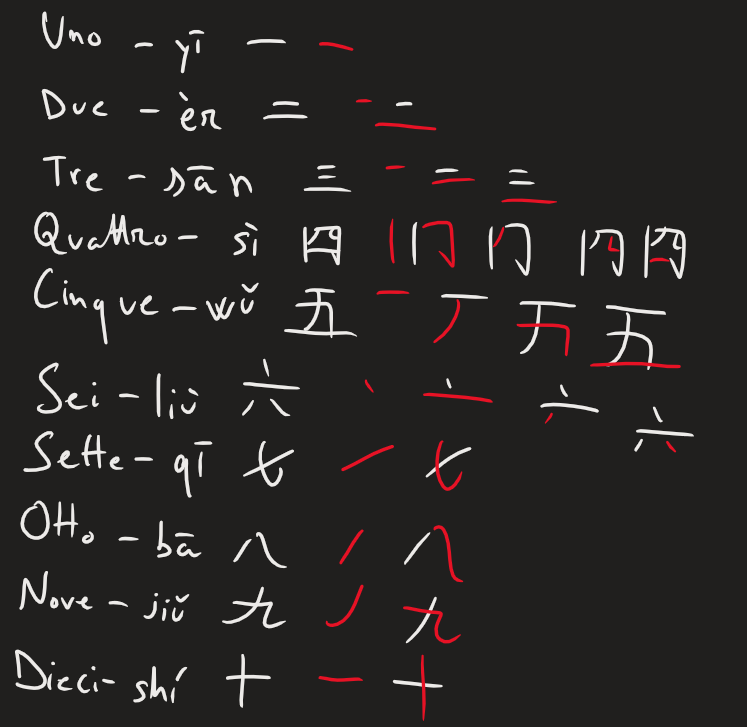 Uno - yī 一 一
Due - èr 二 一 二
Tre - sān 三 一 二 三
Quattro - sì 四 丨 冂 四
Cinque - wǔ 五 一 丆 五
Sei - liù 六 丶 亠 六
Sette - qī 七 一 七
Otto - bā 八 丿 八
Nove - jiǔ 九 丿 九
Dieci - shí 十 一 十